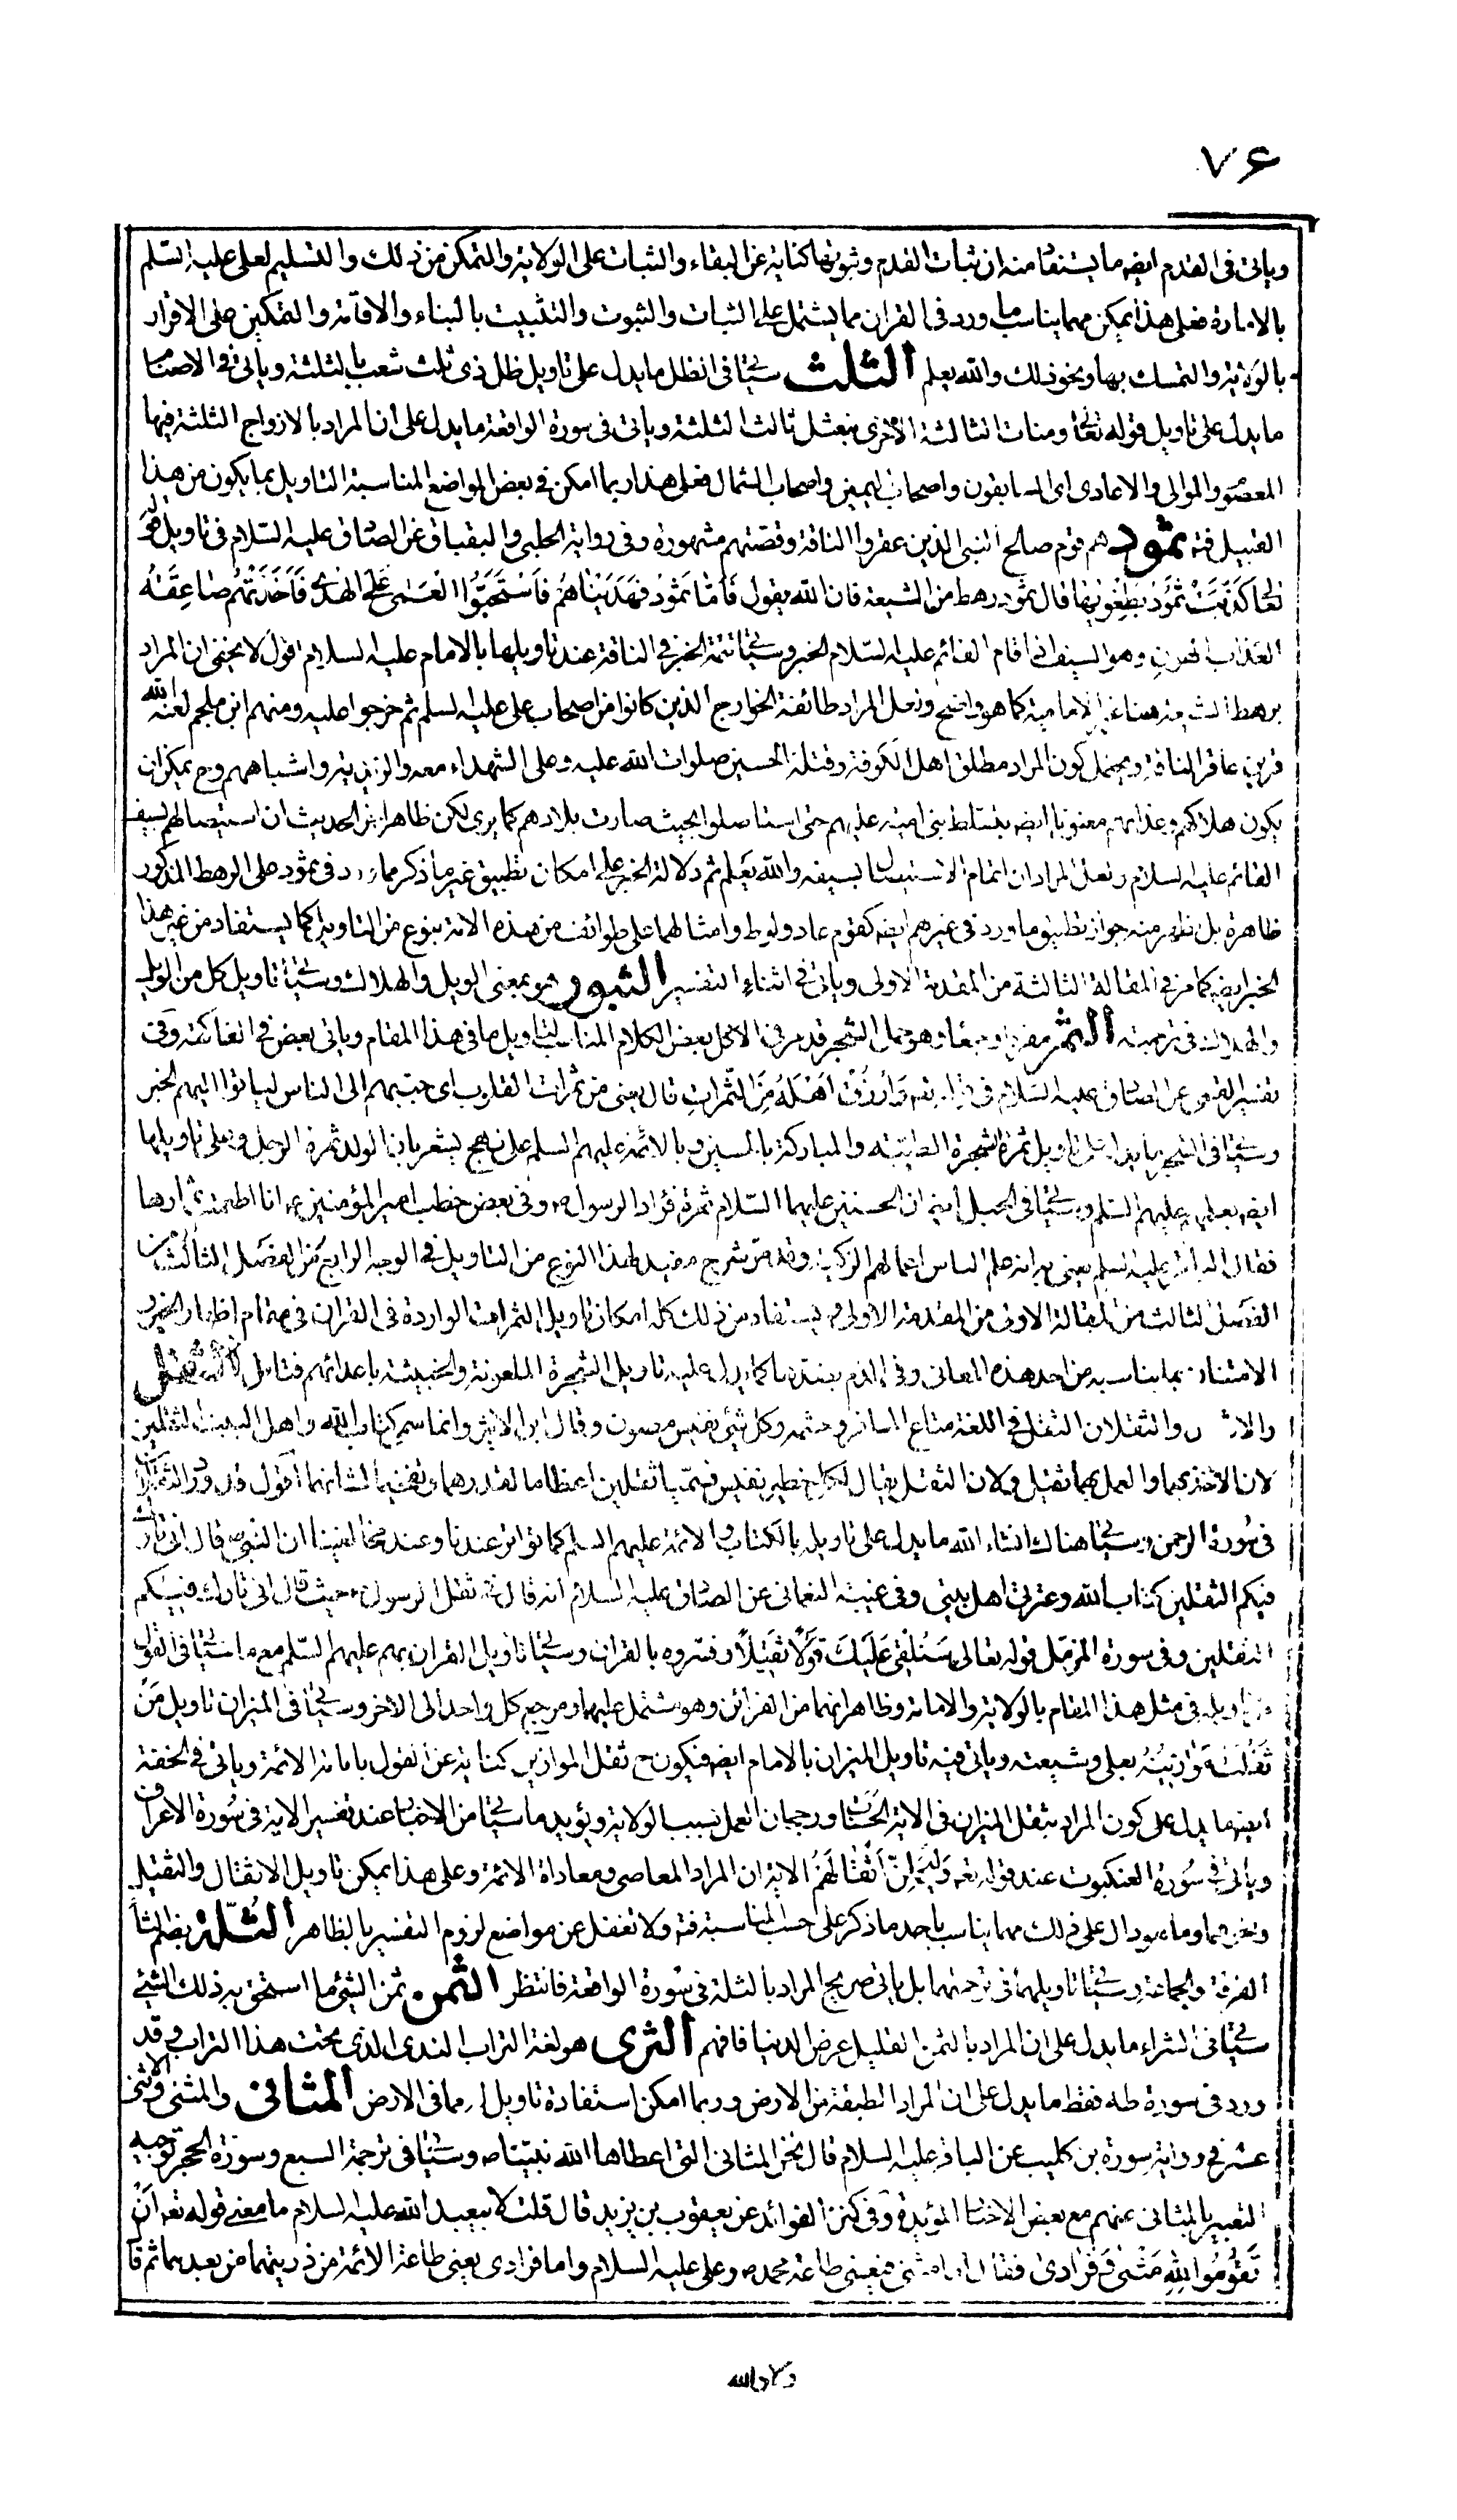 ٧۶
وياتى فى القدم ايضا ما يستفا منه ان ثبات القدم وثبوتها كناية عن البقاء والثبات على الولاية والتمكن من ذلك والتسليم لعلى عليه السلم
بالامارة فعلى هذا يمكن مهما يناسب ما ورد فى القران مما يشتمل على الثبات والثبوت والتثبيت بالبناء والاقامة والتمكين على الاقرار
بالولاية والتمسك بها ونحو ذلك والله يعلم الثلث سيجئ فى الظل ما يدل على تاويل ظل ذى ثلث شعب بالثلثة وياتى فى الاصنام
ما يدل على تاويل قوله تعالى ومنات الثالثة الاخرى بنعثل ثالث الثلثة وياتى فى سورة الواقعة ما يدل على ان المراد بالازواج الثلثة فيها
المعصو والموالى والاعادى اى السابقون واصحاب اليمين واصحاب الشمال فعلى هذا ربما امكن فى بعض المواضع المناسبة التاويل بما يكون من هذا
القبيل فت ثمود هم قوم صالح النبى الذين عقروا الناقة وقصتهم مشهورة وفى رواية الحلبى والبقباق عن الصادق عليه السلام فى تاويل قو
تعا كَذَّبَتْ ثَمُودُ بِطَغْوٰيهَا قال ثمود رهط من الشيعة فان الله يقول فَاَمَّا ثَمُودُ فَهَدَيْنَاهُمْ فَاسْتَحَبُّوا الْعَمَىٰ عَلَى الْهُدىٰ فَاَخَذَتْهُمْ صَاعِقَةُ
العذاب الهون وهو السيف اذا قام القائم عليه السلام الخبر وسيجئ تتمة الخبر فى الناقة عند تاويلها بالامام عليه السلام اقول لا يخفى ان المراد
برهط الشيعة هنا غير الامامية كما هو واضح ولعل المراد طائفة الخوارج الذين كانوا من اصحاب على عليه السلم ثم خرجوا عليه ومنهم ابن ملجم لعنه الله
قرين عاقر الناقة ويحتمل كون المراد مطلق اهل الكوفة وقتلة الحسين صلوات الله عليه وعلى الشهداء معه والزيدية واشباههم وح يمكن ان
يكون هلاكهم وعذابهم معنويا ايضا بتسلط بنى امية عليهم حتى استاصلوا بحيث صارت بلادهم كما يرى لكن ظاهر الحديث ان استيصالهم بسيف
القائم عليه السلام ولعل المراد ان اتمام الاستيصال بسيفه والله يعلم ثم دلالة الخبر على امكان تطبيق غير ما ذكر مما ورد فى ثمود على الرهط المذكور
ظاهرة بل يظهر منه جواز تطبيق ما ورد فى غيرهم ايضا كقوم عاد ولوط وامثالهما على طوائف من هذه الامة بنوع من التاويل كما يستفاد من غير هذا
الخبر ايضا كما مر فى المقالة الثالثة من المقدمة الاولى وياتى فى اثناء التفسير الثبور هو بمعنى الويل والهلاك وسيجئ تاويل كل من الويل
والهلاك فى ترجمته الثمر مفردا وجمعا وهو حمل الشجر قد مر فى الاكل بعض الكلام المناسب لتاويل ما فى هذا المقام وياتى بعض فى الفاكهة وفى
تفسير القمى عن الصادق عليه السلام فى قوله تعه وَارْزُقْ اَهْلَهُ مِنَ الثَّمَراتِ قال يعنى من ثمرات القلوب اى حبهم الى الناس لياتوا اليهم الخبر
وسيجئ فى الشجر ما يدل على تاويل ثمرة الشجرة الطيبة والمباركة بالحسنين وبالائمة عليهم السلم على نهج يشعر بان الولد ثمرة الرجل وعلى تاويلها
ايضا بعلمهم عليهم السلم وسيجئ فى الجبل ايضا ان الحسنين عليهما السلام ثمرة فؤاد الرسول ص وفى بعض خطب امير المؤمنين ع انا اطعمت ثمارها
الفصل الثالث من المقالة الاولى من المقدمة الاولى ويستفاد من ذلك كله امكان تاويل الثمرات الواردة فى القران فى مقام اظهار الخير و
الامتنان بما يناسب من احد هذه المعانى وفى الذم بضدها كما يدل عليه تاويل الشجرة الملعونة والخبيثة باعدائهم فتامل الثقل
والاثقال والثقلان الثقل فى اللغة متاع المسافر وحشمه وكل شئ نفيس مصون وقال ابن الاثير وانما سمى كتاب الله واهل البيت الثقلين
لان الاخذ بهما والعمل بهما ثقيل ولان الثقل يقال لكل خطير نفيس فسميا ثقلين اعظاما لقدرهما وتفخيما لشانهما اقول قد ورد الثقلان
فى سورة الرحمن وسيجئ هناك انشاء الله ما يدل على تاويله بالكتاب والائمة عليهم السلم كما تواتر عندنا وعند مخالفينا ان النبى ص قال انى تارك
فيكم الثقلين كتاب الله وعترتى اهل بيتى وفى غيبة النعمانى عن الصادق عليه السلام انه قال نحن ثقل الرسول ص حيث قال انى تارك فيكم
الثقلين وفى سورة المزمل قوله تعالى سَنُلْقى عَلَيْكَ قَوْلًا ثَقيلًا وفسروه بالقران وسيجئ تاويل القران بهم عليهم السلم مع ما سيجئ فى القول
من تاويله فى مثل هذا المقام بالولاية والامامة وظاهر انهما من القران وهو مشتمل عليهما ومرجع كل واحد الى الاخر وسيجئ فى الميزان تاويل مَنْ
ثَقُلَتْ مَوازينُهُ بعلى وشيعته وياتى فيه تاويل الميزان بالامام ايضا فيكون ح ثقل الموازين كناية عن القول بامامة الائمة وياتى فى الخفة
ايضا ما يدل على كون المراد بثقل الميزان فى الاية الحسنات ورجحان العمل بسبب الولاية ويؤيده ما سيجئ من الاخبار عند تفسير الاية فى سورة الاعراف
وياتى فى سورة العنكبوت عند قوله تعه وَلَيَحْمِلُنَّ اَثْقالَهُمْ الاية ان المراد المعاصى ومعاداة الائمة وعلى هذا يمكن تاويل الاثقال والثقيل
ونحوهما وما هو دال على ذلك مهما يناسب باحد ما ذكر على حسب المناسبة فت ولا تغفل عن مواضع لزوم التفسير بالظاهر الثلة بضم الثا
الفرقة والجماعة وسيجئ تاويلهما فى ترجمتهما بل ياتى صريح المراد بالثلة فى سورة الواقعة فانتظر الثمن ثمن الشئ ما استحق به ذلك الشئ
سيجئ فى الشراء ما يدل على ان المراد بالثمن القليل عرض الدنيا فافهم الثرى هو لغة التراب الندى الذى تحت هذا التراب وقد
ورد فى سورة طه فقط ما يدل على ان المراد الطبقة من الارض وربما امكن استفادة تاويل له مما فى الارض المثانى والمثنى والاثنى
عشر فى رواية سورة بن كليب عن الباقر عليه السلام قال نحن المثانى التى اعطاها الله نبينا ص وسيجئ فى ترجمة السبع وسورة الحجر توجيه
التعبير بالمثانى عنهم مع بعض الاخبار المؤيدة وفى كنز الفوائد عن يعقوب بن يزيد قال قلت لابيعبد الله عليه السلام ما معنى قوله تعه اَنْ
تَقُومُوا لِلّٰهِ مَثْنىٰ وَفُرادىٰ فقال اما مثنى فيعنى طاعة محمد ص وعلى عليه السلام واما فرادى يعنى طاعة الائمة من ذريتهما من بعدهما ثم قا